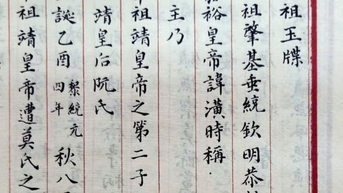 祖玉牒
祖肇基垂統欽明恭
裕皇帝諱潢時稱
主乃
祖靖皇帝之第二子
靖皇后阮氏
誕乙酉黎統元四年秋八
祖靖皇帝遭莫氏之